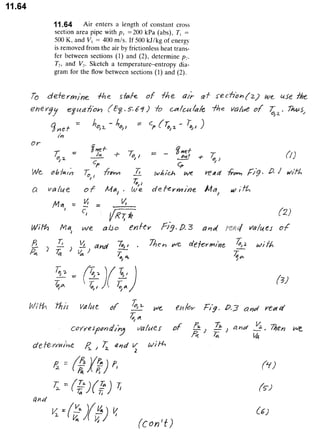 11.64
11.64 Air enters a length of constant cross
section area pipe with p₁ = 200 kPa (abs), T₁ =
500 K, and V₁ = 400 m/s. If 500 kJ/kg of energy
is removed from the air by frictionless heat trans-
fer between sections (1) and (2), determine p₂,
T₂, and V₂. Sketch a temperature–entropy dia-
gram for the flow between sections (1) and (2).
To determine the state of the air at section (2) we use the
energy equation (Eq. 5.69) to calculate the value of T₀,₂. Thus,
q net in = h₀,₂ - h₀,₁ = cp (T₀,₂ - T₀,₁)
or
T₀,₂ = q net in / cp + T₀,₁ = - q net out / cp + T₀,₁ (1)
We obtain T₀,₁ from T₁/T₀,₁ which we read from Fig. D.1 with
a value of Ma₁. We determine Ma₁ with
Ma₁ = V₁/c₁ = V₁/√(RT₁k) (2)
With Ma₁ we also enter Fig. D.3 and read values of
P₁/Pa, T₁/Ta, V₁/Va and T₀,₁/T₀,a. Then we determine T₀,₂/T₀,a with
T₀,₂/T₀,a = (T₀,₂/T₀,₁)(T₀,₁/T₀,a) (3)
With this value of T₀,₂/T₀,a we enter Fig. D.3 and read
corresponding values of P₂/Pa, T₂/Ta, and V₂/Va. Then we
determine P₂, T₂ and V₂ with
P₂ = (P₂/Pa)(Pa/P₁) P₁ (4)
T₂ = (T₂/Ta)(Ta/T₁) T₁ (5)
and
V₂ = (V₂/Va)(Va/V₁) V₁ (6)
(con't)